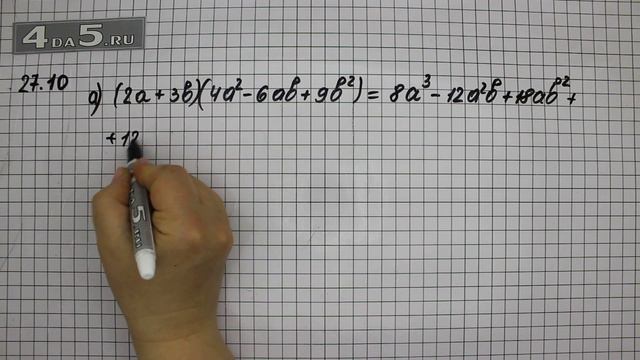 4DA5.RU
27.10
а) (2a + 3b)(4a² - 6ab + 9b²) = 8a³ - 12a²b + 18ab² +
+ 12
5.RU